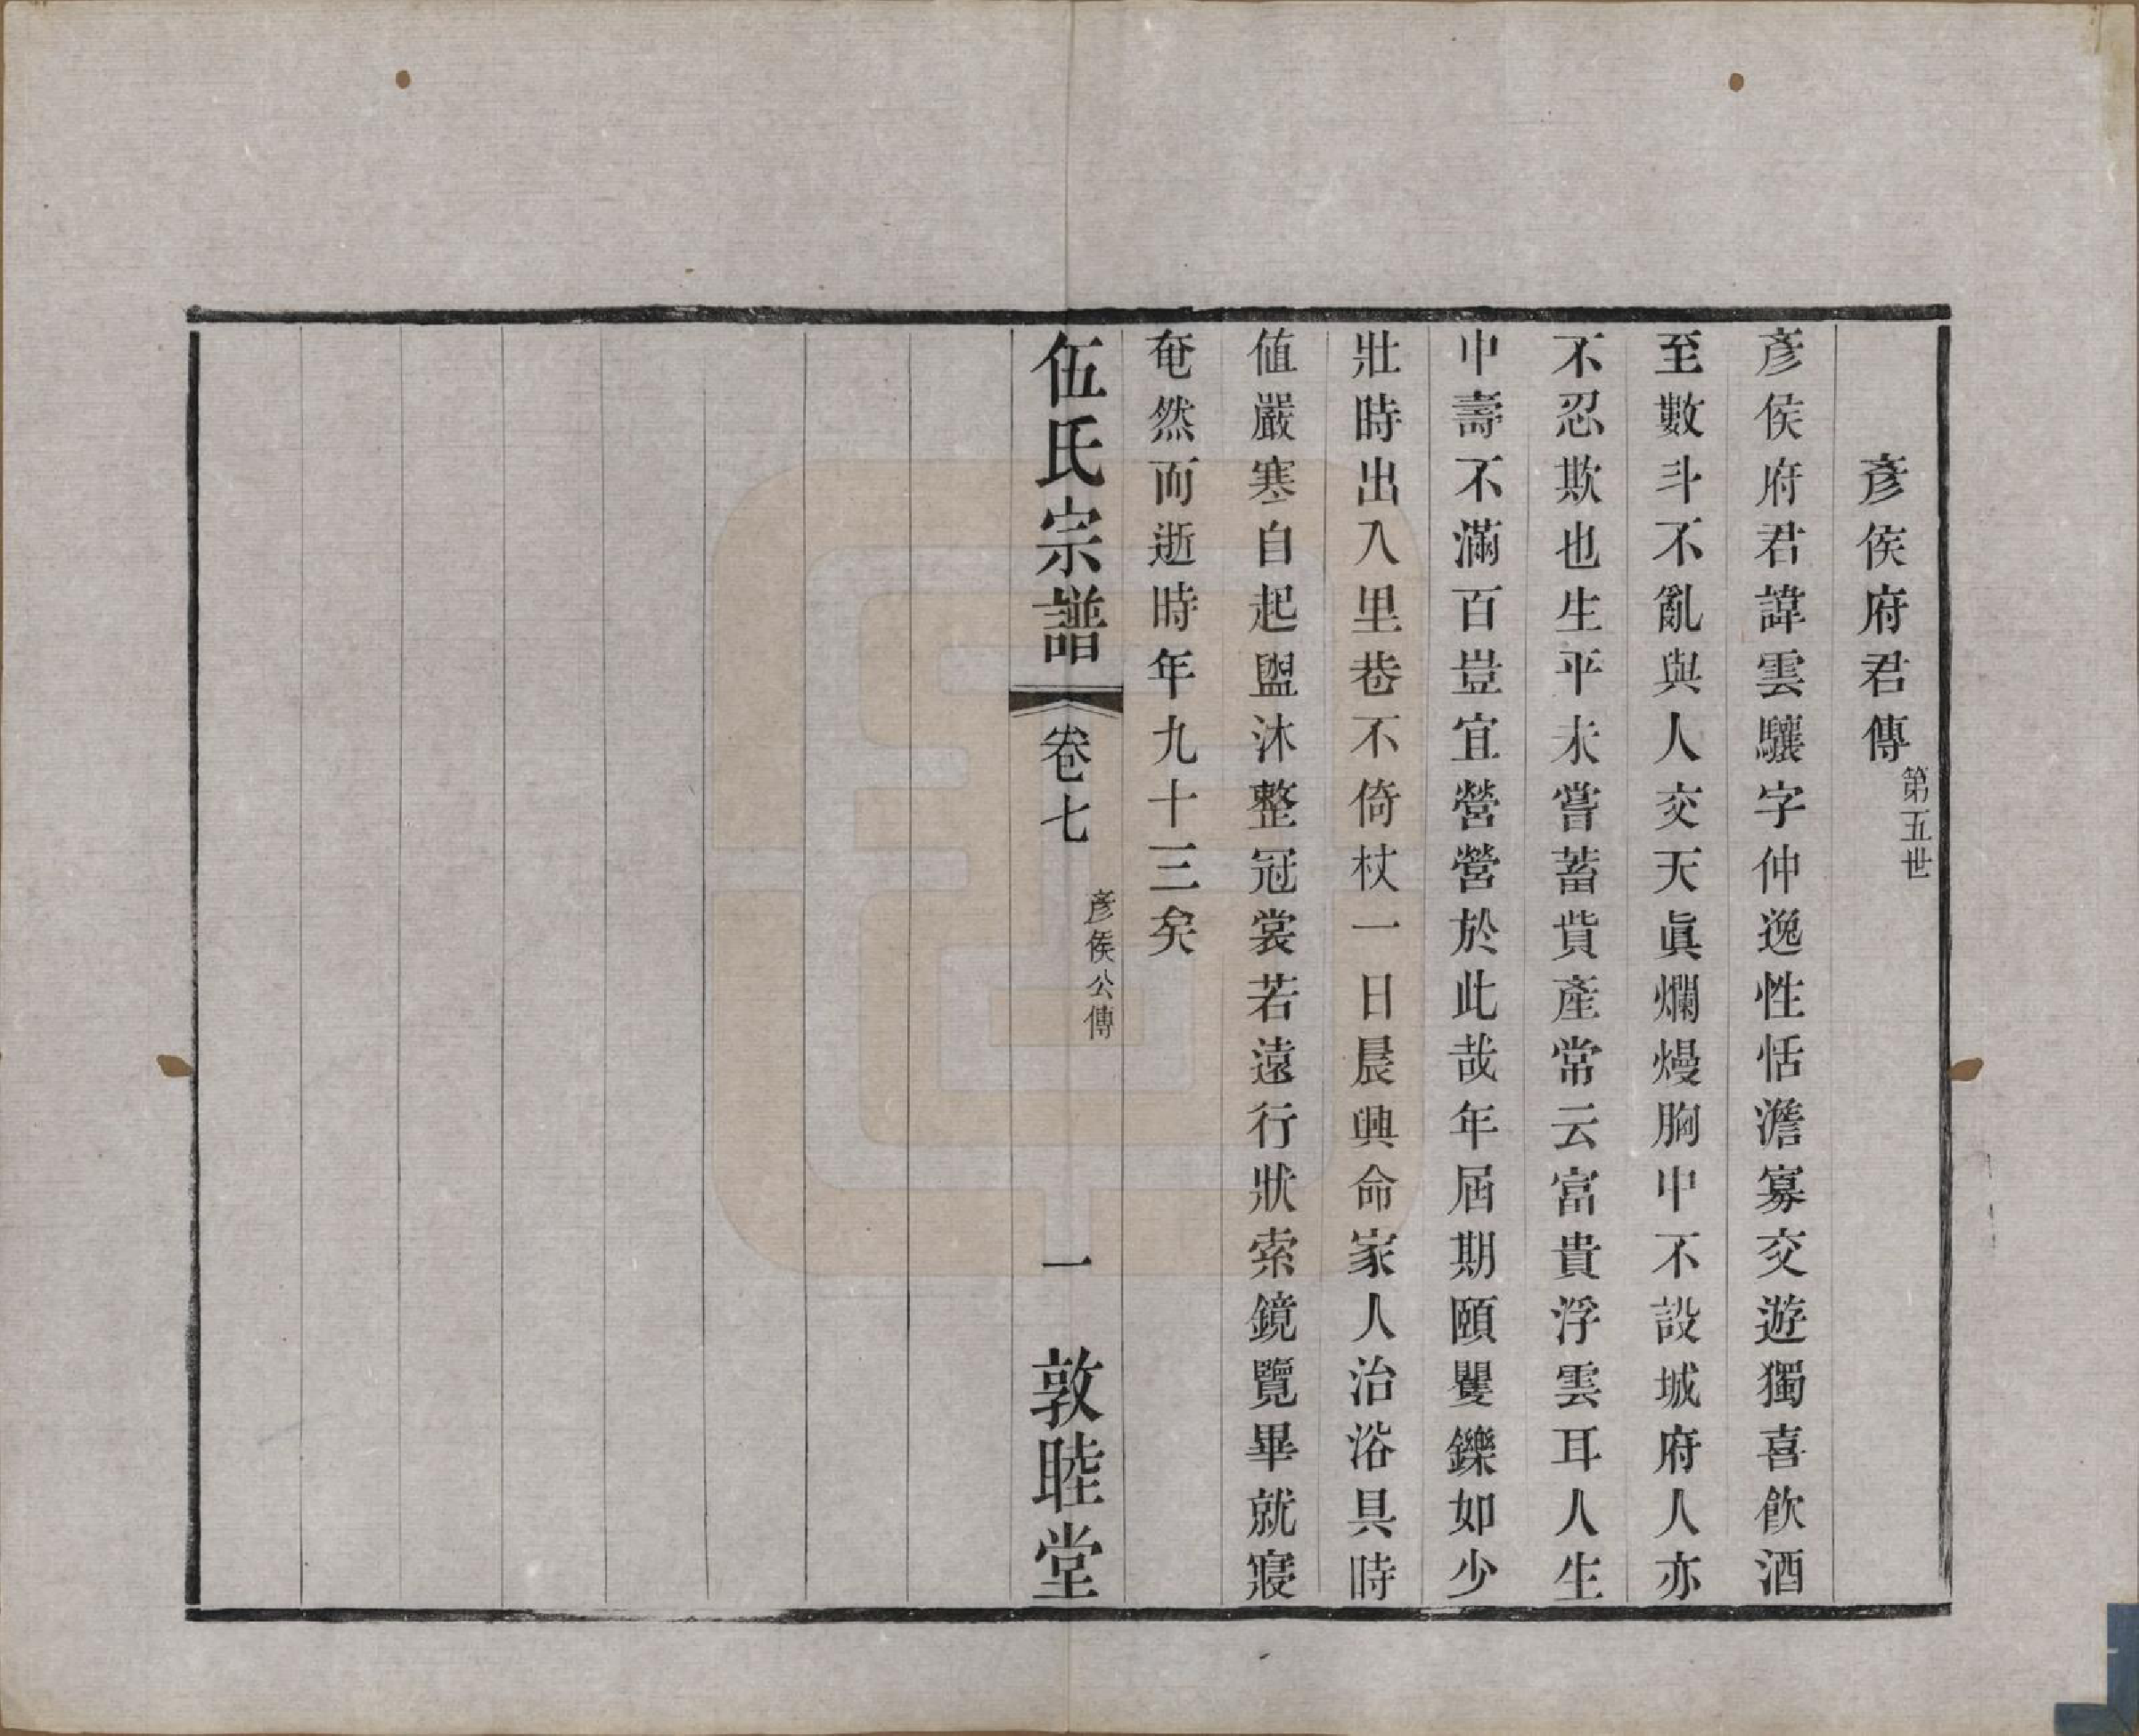 彥侯府君傳第五世
彥侯府君諱雲驤字仲逸性恬澹寡交遊獨喜飮酒
至數斗不亂與人交天眞爛熳胸中不設城府人亦
不忍欺也生平未嘗蓄貲產常云富貴浮雲耳人生
中壽不滿百豈宜營營於此哉年屆期頤矍鑠如少
壯時出入里巷不倚杖一日晨興命家人治浴具時
値嚴寒自起盥沐整冠裳若遠行狀索鏡覽畢就寢
奄然而逝時年九十三矣
伍氏宗譜 卷七 彥侯公傳 一 敦睦堂